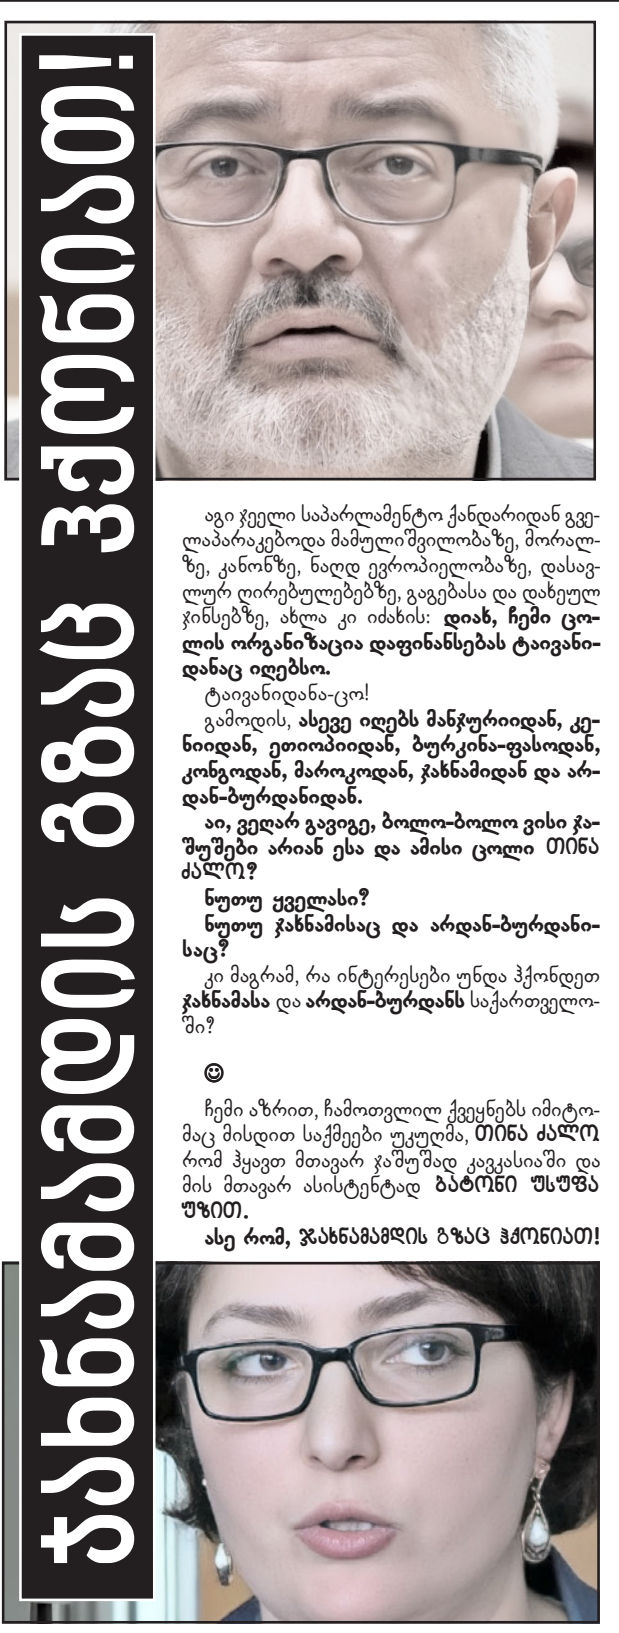 ჯახნამამდის გზაც ჰქონიათ!
აგი ჯეელი საპარლამენტო ქანდარიდან გვე-
ლაპარაკებოდა მამულიშვილობაზე, მორალ-
ზე, კანონზე, ნაღდ ევროპიელობაზე, დასავ-
ლურ ღირებულებებზე, გაგებასა და დახეულ
ჯინსებზე, ახლა კი იძახის: დიახ, ჩემი ცო-
ლის ორგანიზაცია დაფინანსებას ტაივანი-
დანაც იღებსო.
ტაივანიდანა-ცო!
გამოდის, ასევე იღებს მანჯურიიდან, კე-
ნიიდან, ეთიოპიიდან, ბურკინა-ფასოდან,
კონგოდან, მაროკოდან, ჯახნამიდან და არ-
დან-ბურდანიდან.
აი, ვეღარ გავიგე, ბოლო-ბოლო ვისი ჯა-
შუშები არიან ესა და ამისი ცოლი თინა
ძალო?
ნუთუ ყველასი?
ნუთუ ჯახნამისაც და არდან-ბურდანი-
საც?
კი მაგრამ, რა ინტერესები უნდა ჰქონდეთ
ჯახნამასა და არდან-ბურდანს საქართველო-
ში?
☺
ჩემი აზრით, ჩამოთვლილ ქვეყნებს იმიტო-
მაც მისდით საქმეები უკუღმა, თინა ძალო
რომ ჰყავთ მთავარ ჯაშუშად კავკასიაში და
მის მთავარ ასისტენტად ბატონი უსუფა
უზით.
ასე რომ, ჯახნამამდის გზაც ჰქონიათ!